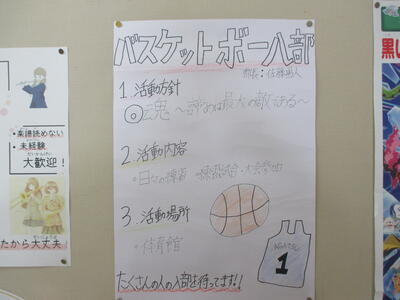 バスケットボール部
部長：佐藤
1. 活動方針
◎魂 ～諦めは最大の敵である～
2. 活動内容
・日々の練習 ・練習試合・大会参加
3. 活動場所
・体育館
1
たくさんの人の入部を待ってます!!
・楽譜読めない
・未経験
だいかんげい
大歓迎！
たから大丈夫
黒い